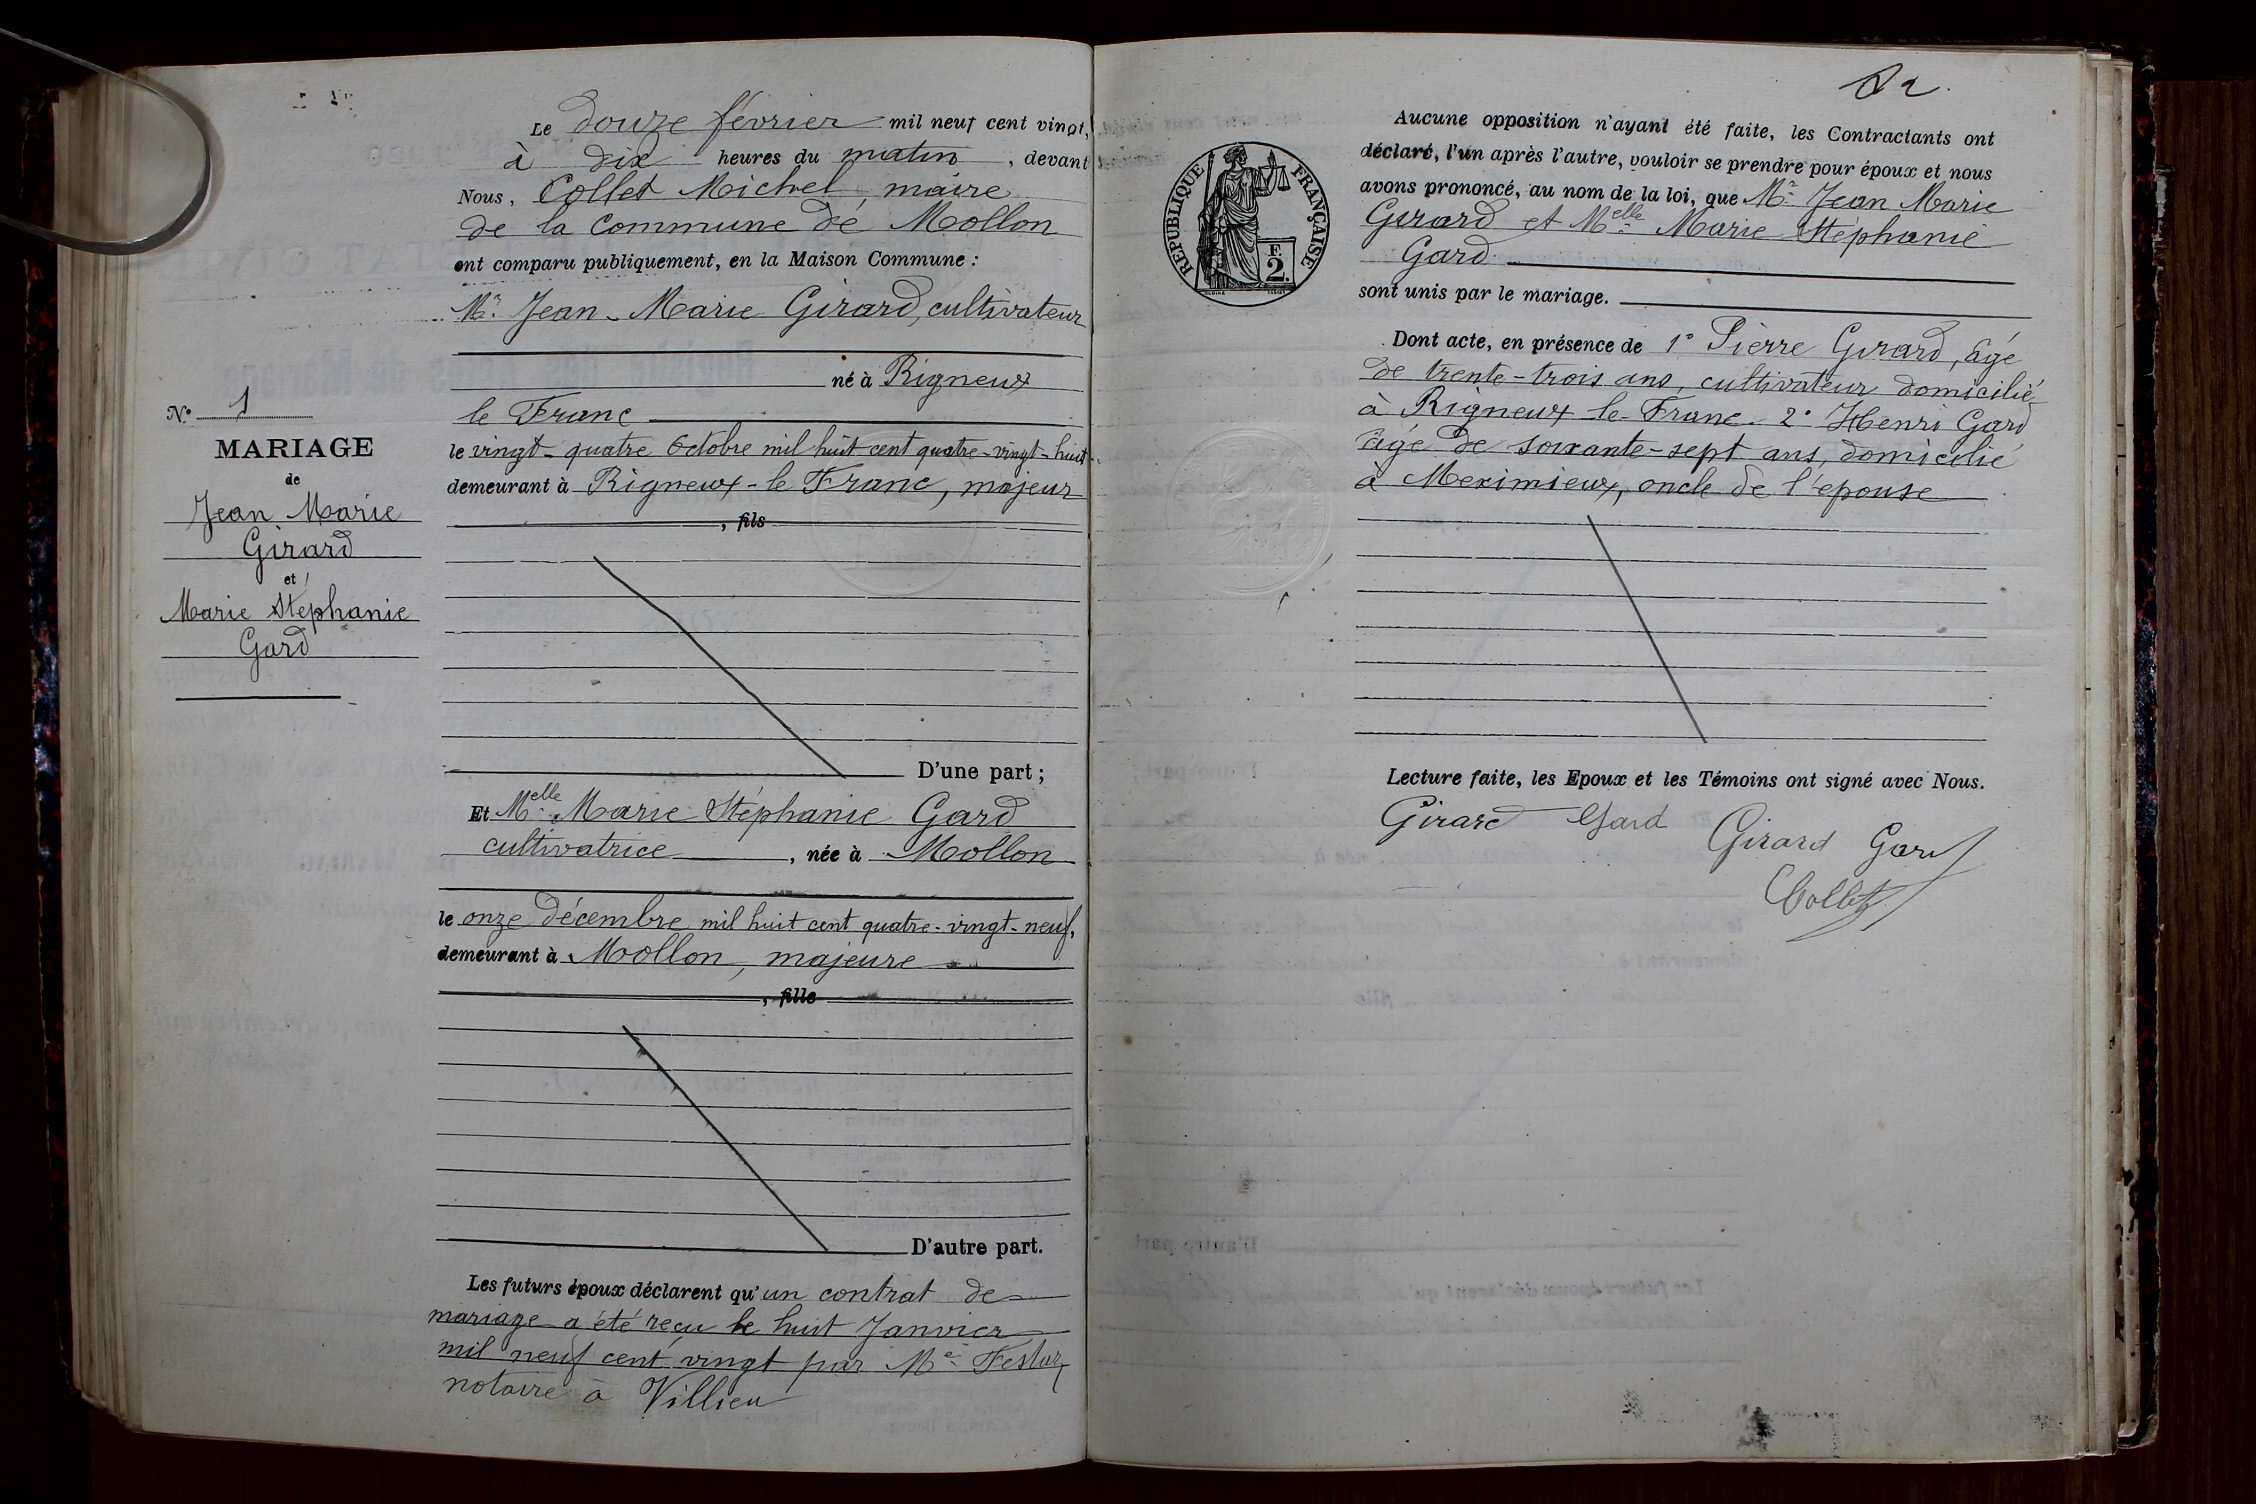 Le douze février mil neuf cent vingt,
à dix heures du matin, devant
Nous, Collet Michel, maire
de la commune de Mollon
ont comparu publiquement, en la Maison Commune :
Mr. Jean-Marie Girard, cultivateur
né à Rigneux
le Franc
le vingt-quatre Octobre mil huit cent quatre-vingt-huit
demeurant à Rigneux-le Franc, majeur
, fils
D'une part ;
Et Melle Marie Stéphanie Gard
cultivatrice, née à Mollon
le onze décembre mil huit cent quatre-vingt-neuf,
demeurant à Mollon, majeure
, fille
D'autre part.
Les futurs époux déclarent qu'un contrat de
mariage a été reçu le huit Janvier
mil neuf cent vingt par Me
notaire à Villieu
N° 1
MARIAGE
de
Jean Marie
Girard
et
Marie Stéphanie
Gard
RÉPUBLIQUE FRANÇAISE
F.
2
Aucune opposition n'ayant été faite, les Contractants ont
déclaré, l'un après l'autre, vouloir se prendre pour époux et nous
avons prononcé, au nom de la loi, que Mr Jean Marie
Girard et Melle Marie Stéphanie
Gard
sont unis par le mariage.
Dont acte, en présence de 1° Pierre Girard, âgé
de trente-trois ans, cultivateur domicilié
à Rigneux le-Franc. 2° Henri Gard
âgé de soixante-sept ans, domicilié
à Meximieux, oncle de l'epouse
Lecture faite, les Epoux et les Témoins ont signé avec Nous.
Girard Gard Girard Gard
Collet